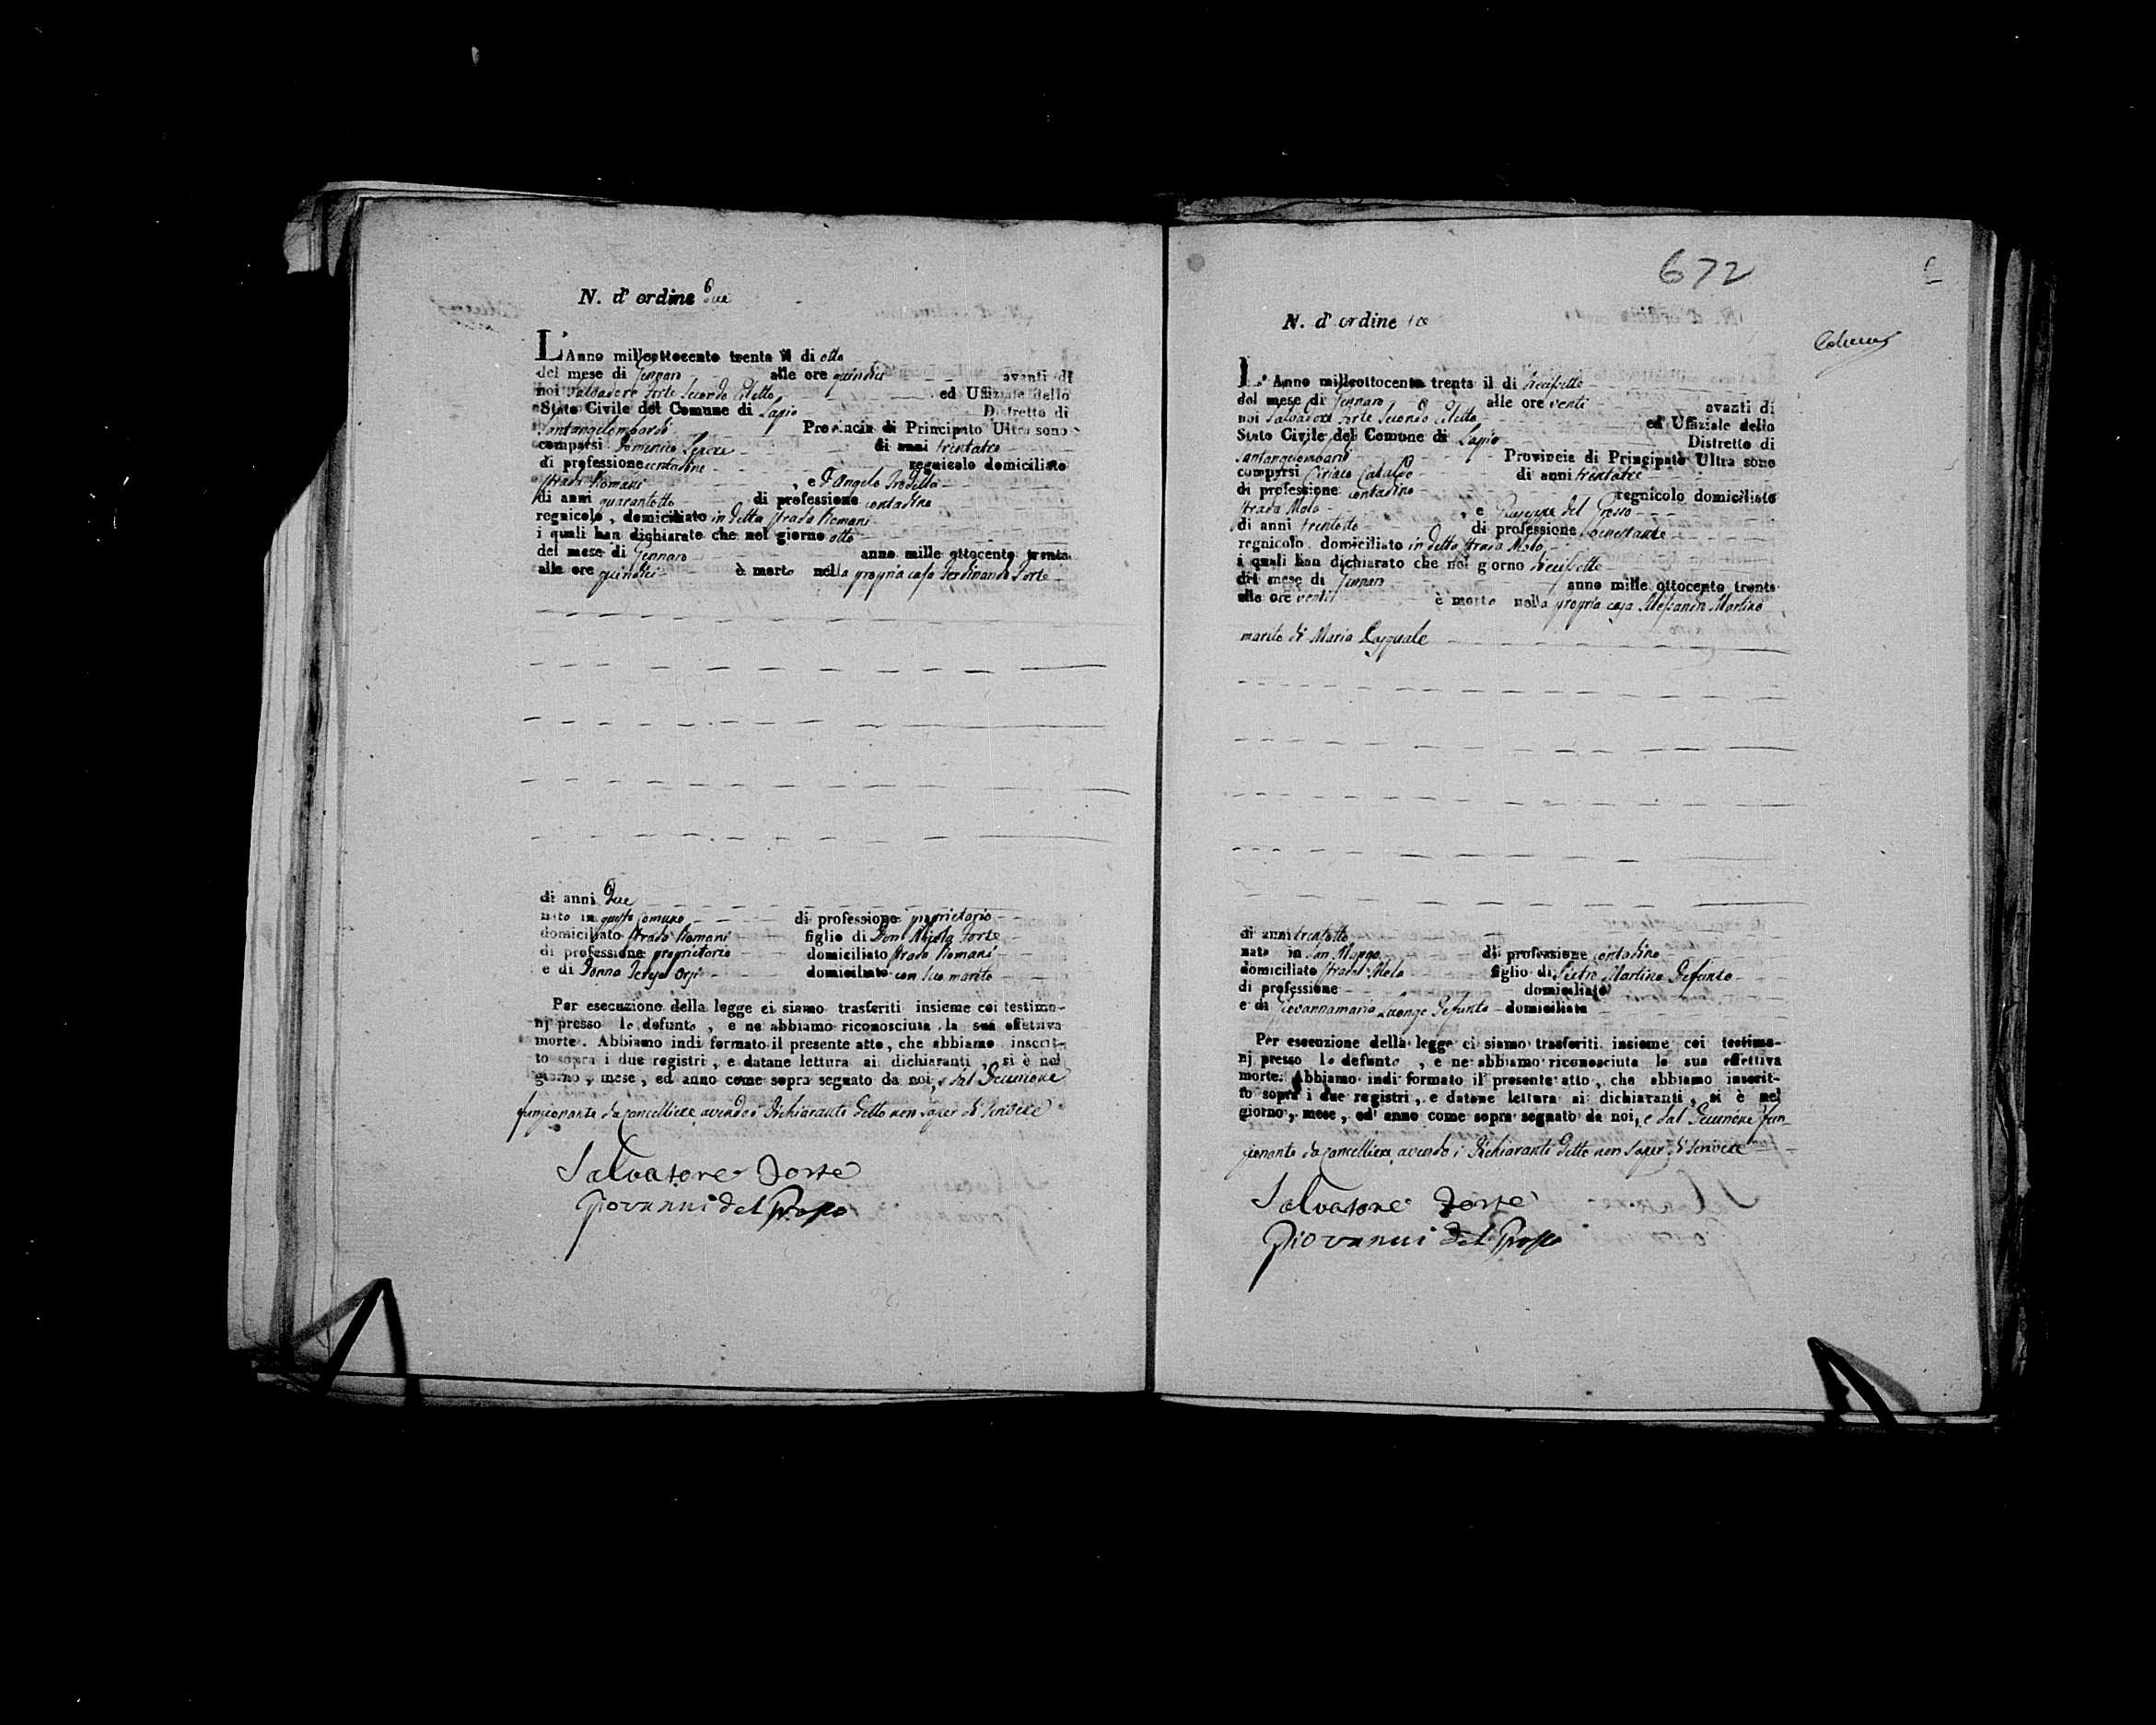 N. d' ordine due
L'Anno milleottocento trenta il di otto
del mese di Gennaro alle ore quindici avanti di
noi Salvadore Forte Secondo Eletto ed Uffiziale dello
Stato Civile del Comune di Lapio Distretto di
Santangelombardi Provincia di Principato Ultra sono
comparsi Domenico di anni trentatre
di professione contadino regnicolo domiciliato
strada Romani , e D'Angelo
di anni quarantotto di professione contadino
regnicolo , domiciliato in detta strada Romani
i quali han dichiarato che nel giorno otto
del mese di Gennaro anno mille ottocento trenta
alle ore quindici è morto nella propria casa Ferdinando Forte
di anni due
nato in questo Comune di professione proprietario
domiciliato strada Romani figlio di Don Nicola Forte
di professione proprietario domiciliato strada Romani
e di Donna Teresa domiciliato con suo marito
Per esecuzione della legge ci siamo trasferiti insieme coi testimo-
nj presso lo defunto , e ne abbiamo riconosciuta la sua effettiva
morte . Abbiamo indi formato il presente atto , che abbiamo inscrit-
to sopra i due registri , e datane lettura ai dichiaranti , si è nel
giorno , mese , ed anno come sopra segnato da noi, e dal Decurione
funzionante da Cancelliere avendo i dichiaranti detto non saper di scrivere
Salvatore Forte
Giovanni del Grosso
672
N. d' ordine tre
L'Anno milleottocento trenta il di diecisette
del mese di Gennaro alle ore venti avanti di
noi Salvadore Forte Secondo Eletto ed Uffiziale dello
Stato Civile del Comune di Lapio Distretto di
Santangelombardi Provincia di Principato Ultra sono
comparsi Ciriaco Cataldo di anni trentatre
di professione contadino regnicolo domiciliato
strada Molo , e Giuseppe del Grosso
di anni trentotto di professione benestante
regnicolo domiciliato in detta strada Molo
i quali han dichiarato che nel giorno diecisette
del mese di Gennaro anno mille ottocento trenta
alle ore venti è morto nella propria casa Alessandro Martino
marito di Maria Pasquale
di anni trentotto
nato in San Mango di professione contadino
domiciliato strada Molo figlio di Pietro Martino defunto
di professione domiciliato
e di Giovannamaria Luongo defunto domiciliata
Per esecuzione della legge ci siamo trasferiti insieme coi testimo-
nj presso lo defunto , e ne abbiamo riconosciuta la sua effettiva
morte. Abbiamo indi formato il presente atto, che abbiamo inscrit-
to sopra i due registri, e datane lettura ai dichiaranti, si è nel
giorno, mese, ed anno come sopra segnato da noi, e dal Decurione fun-
zionante da Cancelliere avendo i dichiaranti detto non saper di scrivere
Salvatore Forte
Giovanni del Grosso